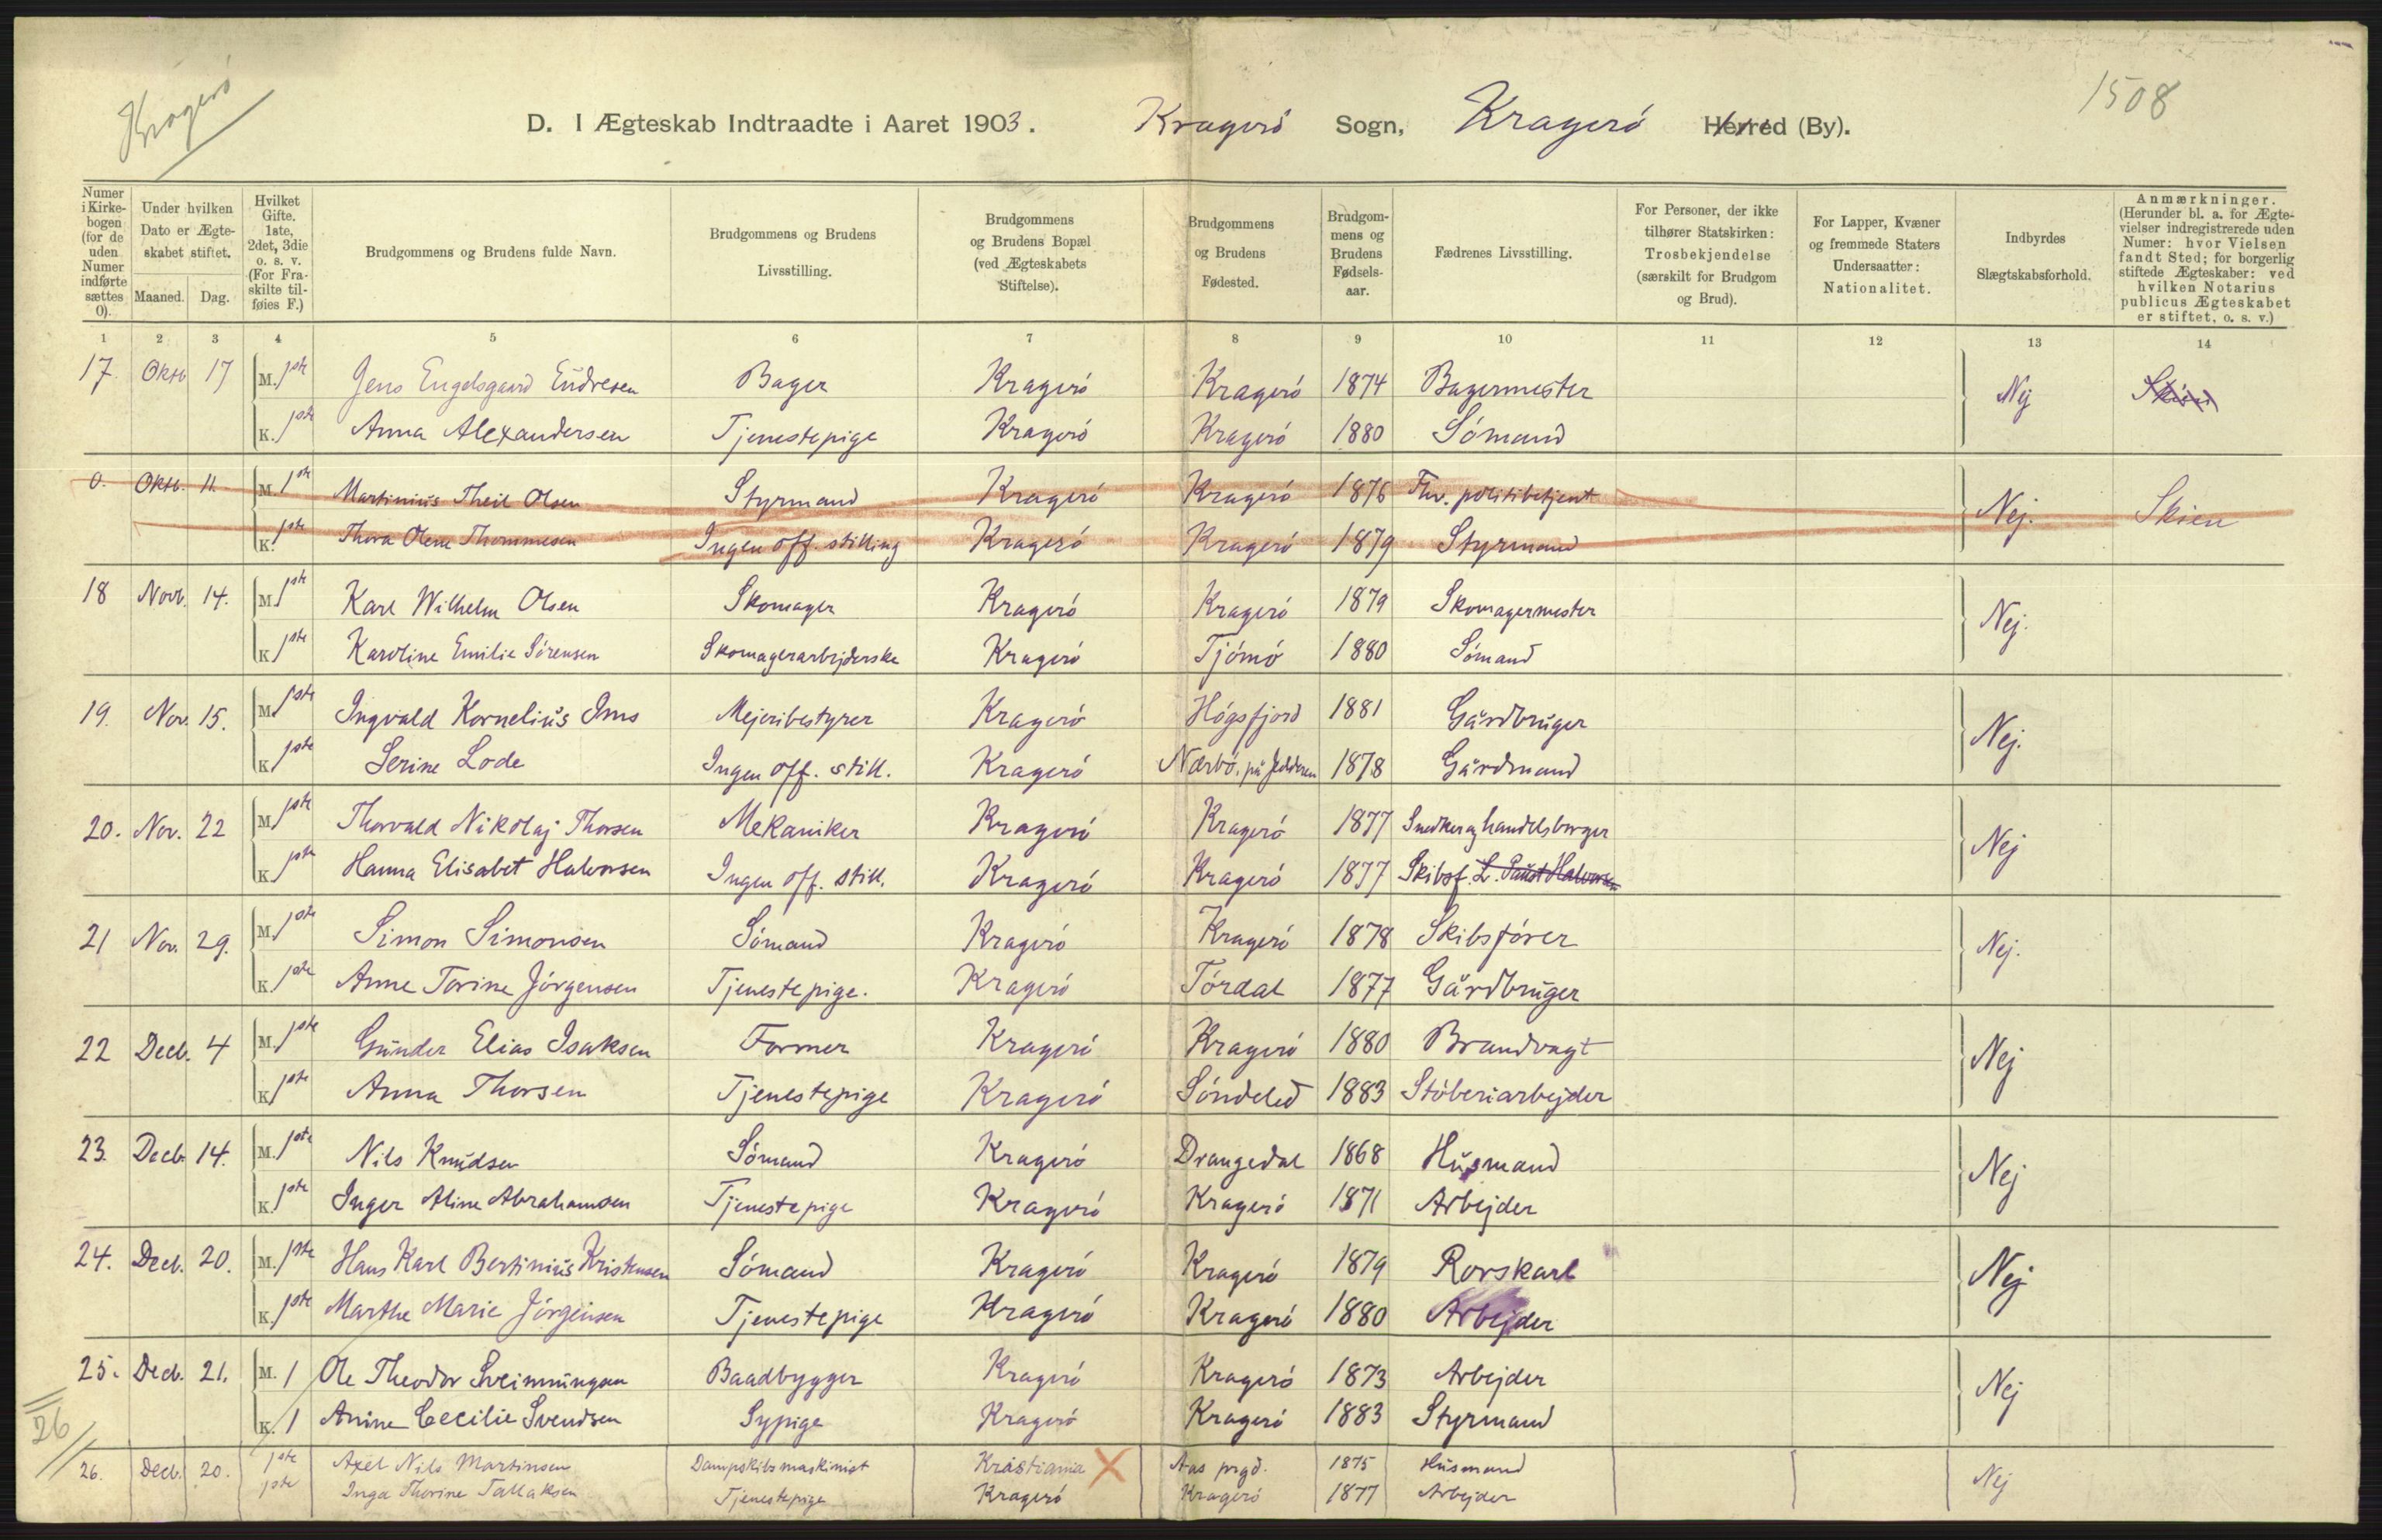 Kragerö
1508
D. I Ægteskab Indtraadte i Aaret 1903. Kragerö Sogn, Kragerö Herred (By).
Numer i Kirkebogen (for de uden Numer indførte sættes 0).
Under hvilken Dato er Ægteskabet stiftet. Maaned. Dag.
Hvilket Gifte. 1ste, 2det, 3die o. s. v. (For Fraskilte tilføies F.)
Brudgommens og Brudens fulde Navn.
Brudgommens og Brudens Livsstilling.
Brudgommens og Brudens Bopæl (ved Ægteskabets Stiftelse).
Brudgommens og Brudens Fødested.
Brudgommens og Brudens Fødselsaar.
Fædrenes Livsstilling.
For Personer, der ikke tilhører Statskirken: Trosbekjendelse (særskilt for Brudgom og Brud).
For Lapper, Kvæner og fremmede Staters Undersaatter: Nationalitet.
Indbyrdes Slægtskabsforhold.
Anmærkninger. (Herunder bl. a. for Ægtevielser indregistrerede uden Numer: hvor Vielsen fandt Sted; for borgerlig stiftede Ægteskaber: ved hvilken Notarius publicus Ægteskabet er stiftet, o. s. v.)
1 2 3 4 5 6 7 8 9 10 11 12 13 14
17. Oktb 17 M. 1ste Jens Engelsgaard Eudresen Bager Kragerö Kragerö 1874 Bagermester Nej Skien
K. 1ste Anna Alexandersen Tjenestepige Kragerö Kragerö 1880 Sömand
0. Oktb. 11. M. 1ste Martinius Theil Olsen Styrmand Kragerö Kragerö 1876 Fhv. politibetjent Nej. Skien
K. 1ste Thora Olene Thommesen Ingen off. stilling Kragerö Kragerö 1879 Styrmand
18 Novb. 14. M. 1ste Karl Wilhelm Olsen Skomager Kragerö Kragerö 1879 Skomagermester Nej.
K. 1ste Karoline Emilie Sörensen Skomagerarbejderske Kragerö Tjömö 1880 Sömand
19. Nov. 15. M. 1ste Ingvald Kornelius Ims Mejeribestyrer Kragerö Högsfjord 1881 Gårdbruger Nej.
K. 1ste Serine Lode Ingen off. still. Kragerö Nærbö, på Jædderen 1878 Gårdmand
20. Nov. 22 M. 1ste Thorvald Nikolaj Thorsen Mekaniker Kragerö Kragerö 1877 Snedker og handelsborger Nej
K. 1ste Hanna Elisabet Halvorsen Ingen off. still. Kragerö Kragerö 1877 Skibsf. L. Faust Halvorsen
21 Nov. 29. M. 1ste Simon Simonsen Sömand Kragerö Kragerö 1878 Skibsförer Nej.
K. 1ste Anne Torine Jörgensen Tjenestepige. Kragerö Tördal 1877 Gårdbruger
22 Decb. 4 M. 1ste Gunder Elias Isaksen Former Kragerö Kragerö 1880 Brandvagt Nej
K. 1ste Anna Thorsen Tjenestepige Kragerö Söndeled 1883 Stöberiarbejder
23. Decb. 14. M. 1ste Nils Knudsen Sömand Kragerö Drangedal 1868 Husmand Nej
K. 1ste Inger Aline Abrahamsen Tjenestepige Kragerö Kragerö 1871 Arbejder
24. Decb. 20. M. 1ste Hans Karl Bertinius Kristensen Sömand Kragerö Kragerö 1879 Rorskarl Nej
K. 1ste Marthe Marie Jörgensen Tjenestepige Kragerö Kragerö 1880 Arbejder
25. Decb. 21. M. 1 Ole Theodor Sveinungsen Baadbygger Kragerö Kragerö 1873 Arbejder Nej
K. 1 Anine Cecilie Svendsen Sypige Kragerö Kragerö 1883 Styrmand
26
26. Decb. 20. 1ste Axel Nils Martinsen Dampskibsmaskinist Kristiania X Aas prgd. 1875 Husmand Nej
1ste Inga Thorine Tallaksen Tjenestepige Kragerö Kragerö 1877 Arbejder